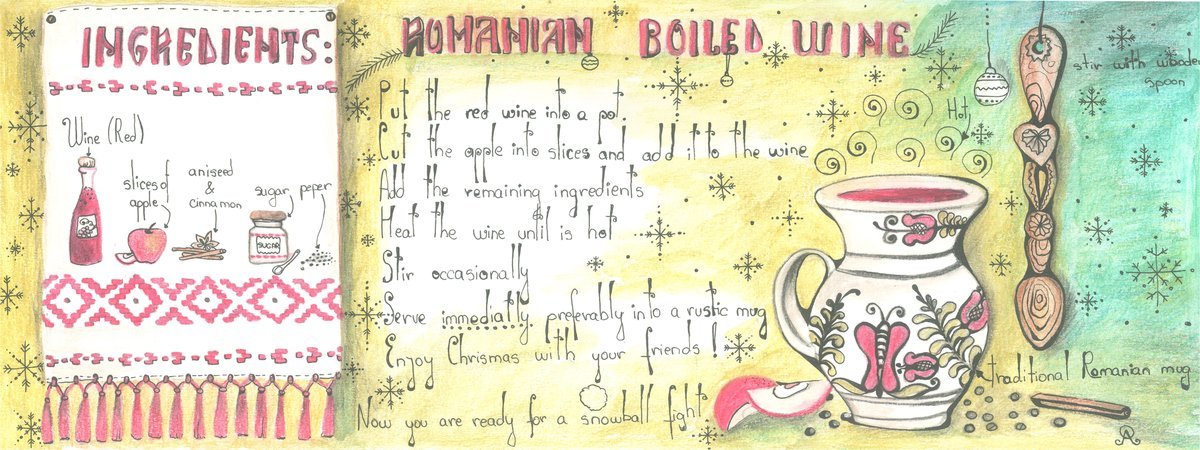 INGREDIENTS:
Wine (Red)
slices of
apple
aniseed
&
cinnamon
sugar
peper
SUGAR
ROMANIAN BOILED WINE
Put the red wine into a pot.
Cut the apple into slices and add it to the wine
Add the remaining ingredients
Heat the wine until is hot
Stir occasionally
Serve immediatly, preferably into a rustic mug
Enjoy Chrismas with your friends!
Now you are ready for a snowball fight
Hot
stir with wooden
spoon
traditional Romanian mug